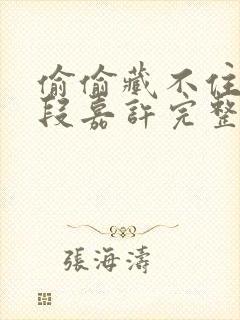 偷偷藏不住
段嘉許完整
張海濤